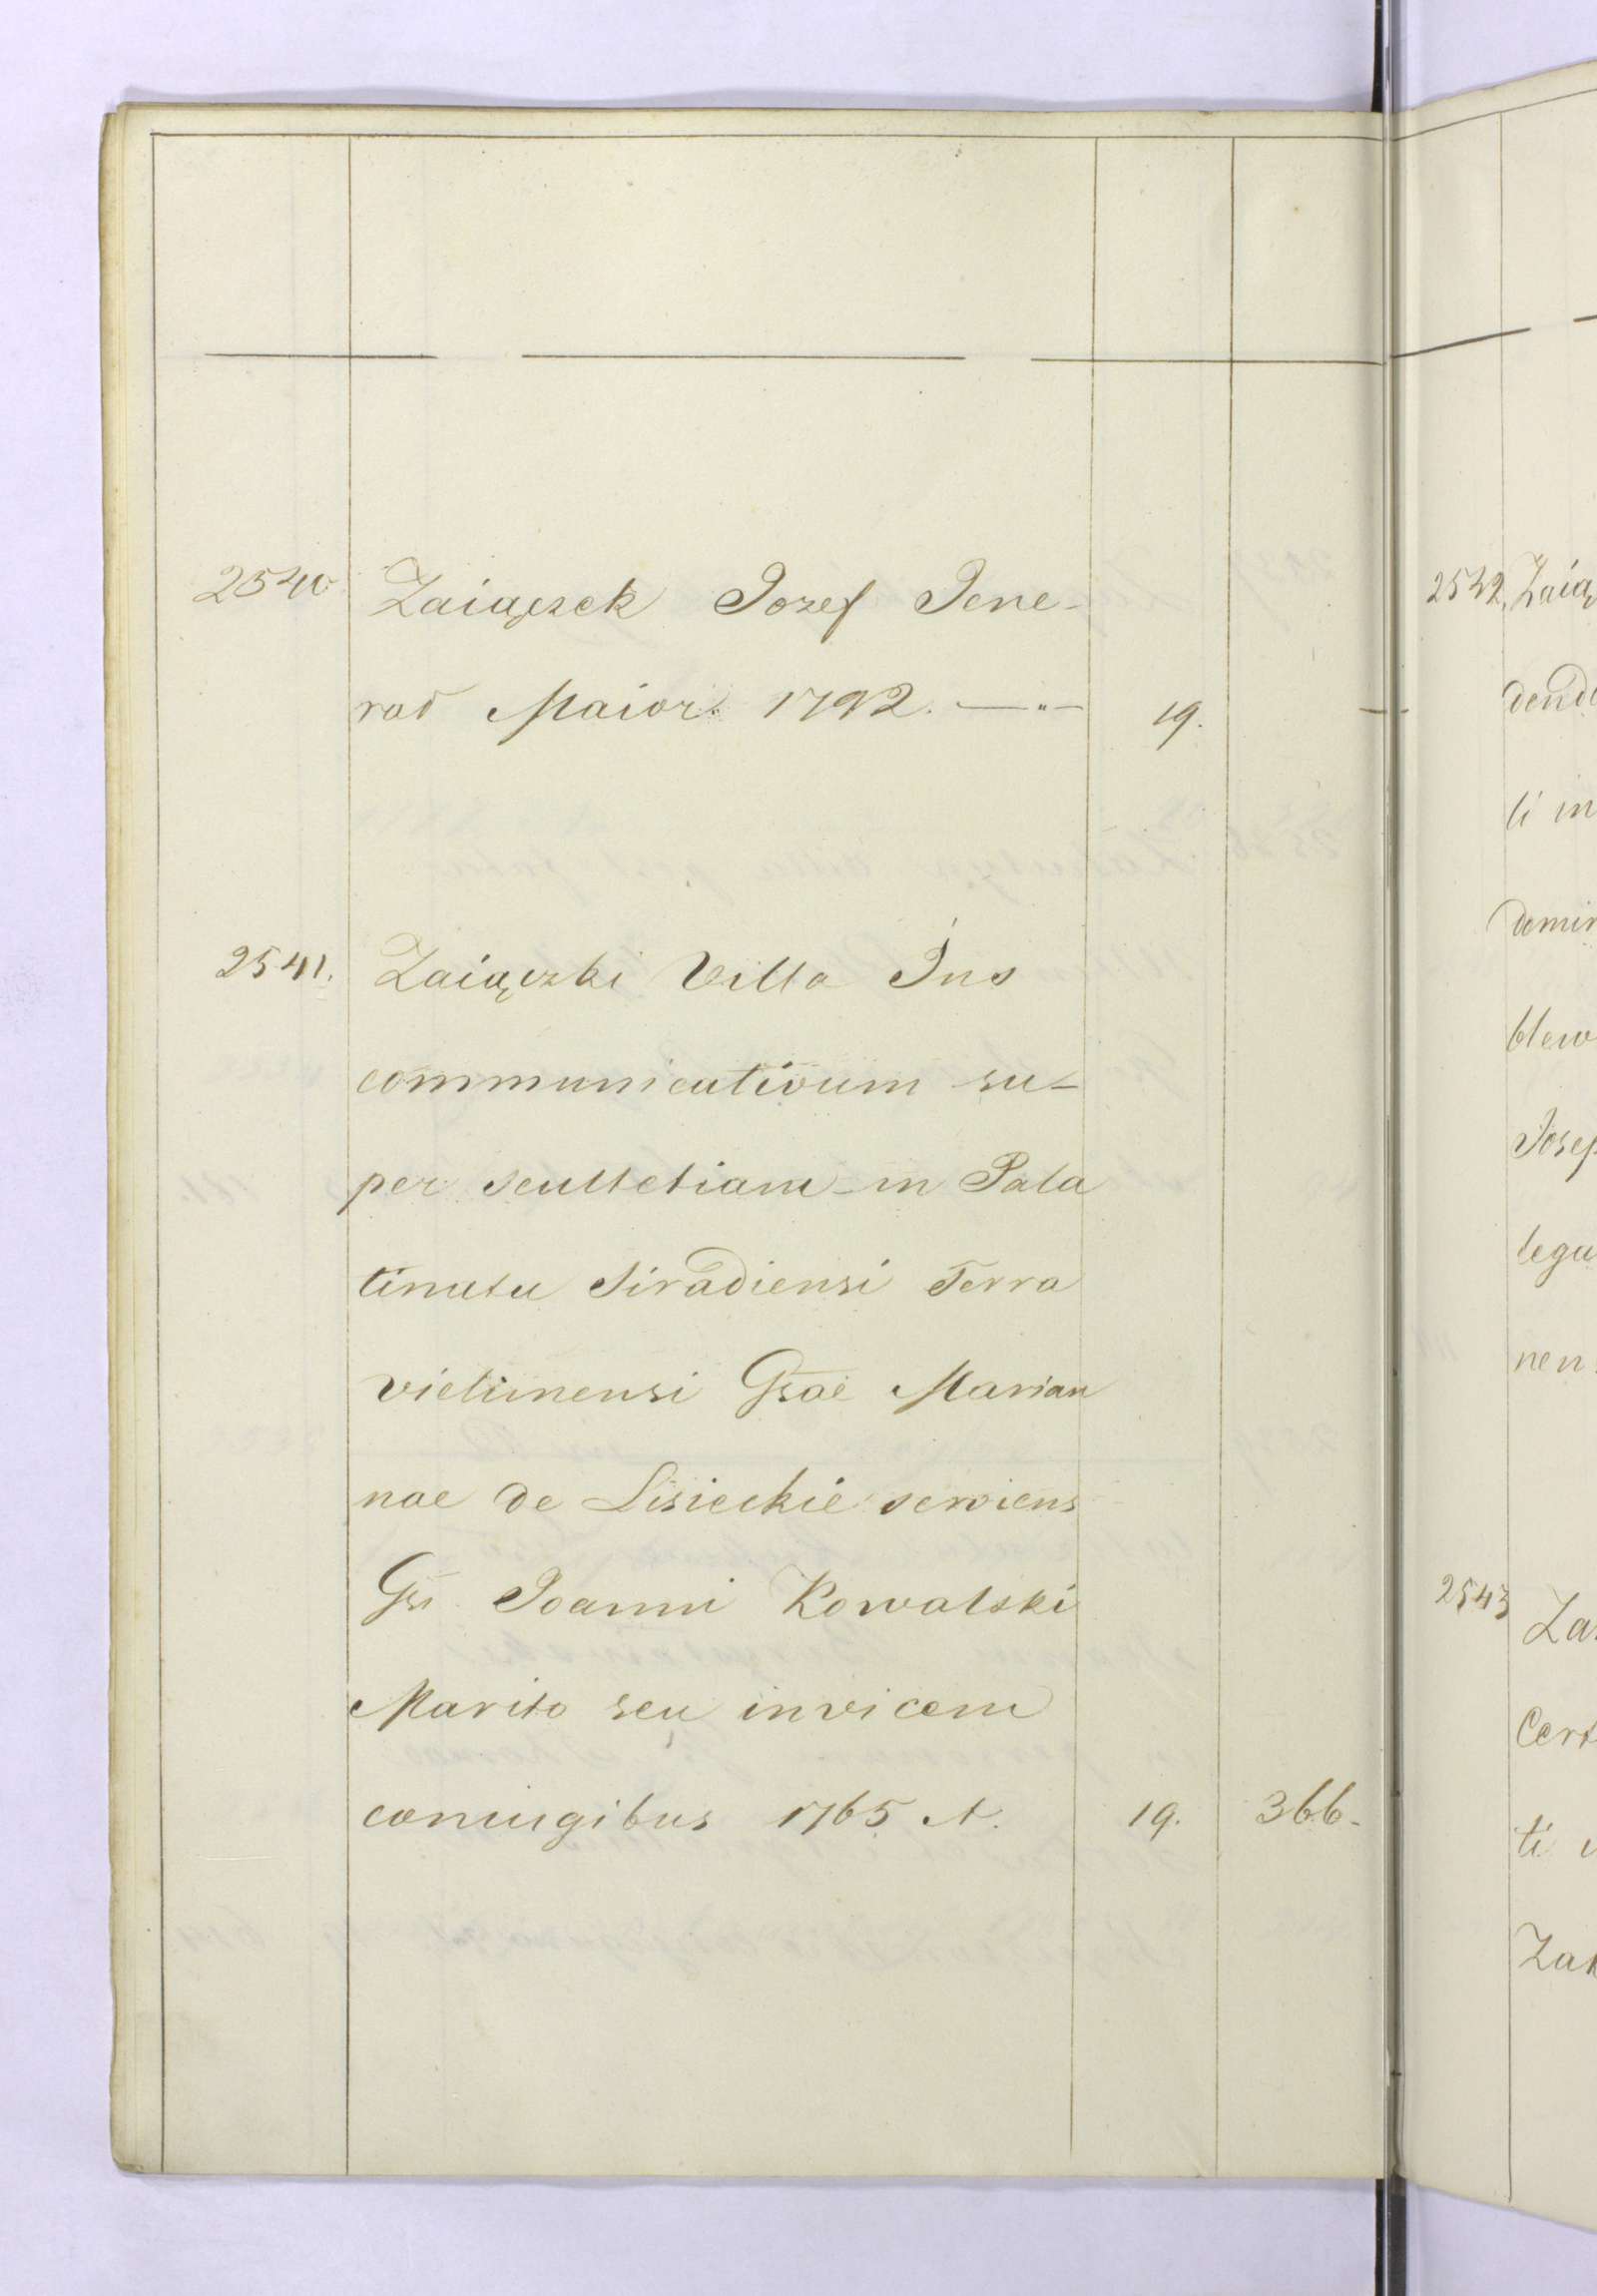 2540 Zaiączek Jozef Jene-
rał Maior. 1792. —"— 19.
2541. Zaiączki Villa Jus
communicativum su-
per scultetiam in Pala
tinatu Siradiensi Terra
vielunensi Gsae Marian
nae de Lisieckie serviens
Gso Joanni Kowalski
Marito seu invicem
coniugibus 1765 A. 19. 366.
2542. Zaią
dend
li in
domin
blew
Josep
lega
nen
2543 Za
Cert
ti
Zak